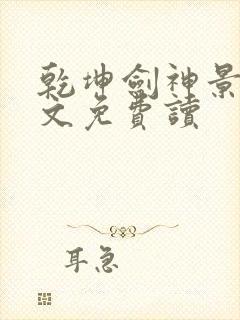 乾坤劍神景
文免費讀
耳急